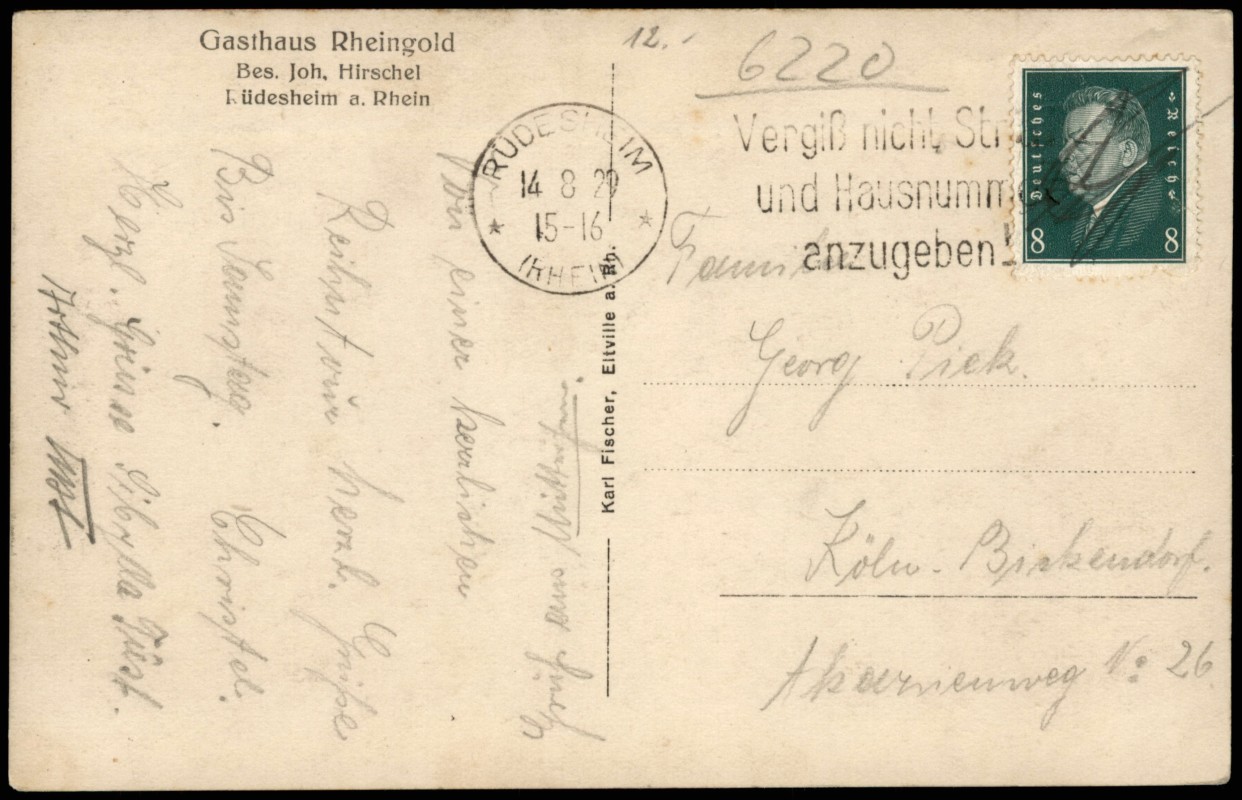 Gasthaus Rheingold
Bes. Joh. Hirschel
Rüdesheim a. Rhein
12.-
6220
RÜDESHEIM
14 8 29
15-16
(RHEIN)
Vergiß nicht Str
und Hausnumm
anzugeben!
Deutsches Reich
8 8
Karl Fischer, Eltville a. Rh.
Familie
Georg Pick.
Köln-Bickendorf.
Akazienweg No 26
Von einer herrlichen
Reihntour herzl. Grüße
Bis Samstag. Christel.
Herzl. Grüsse Sibylla